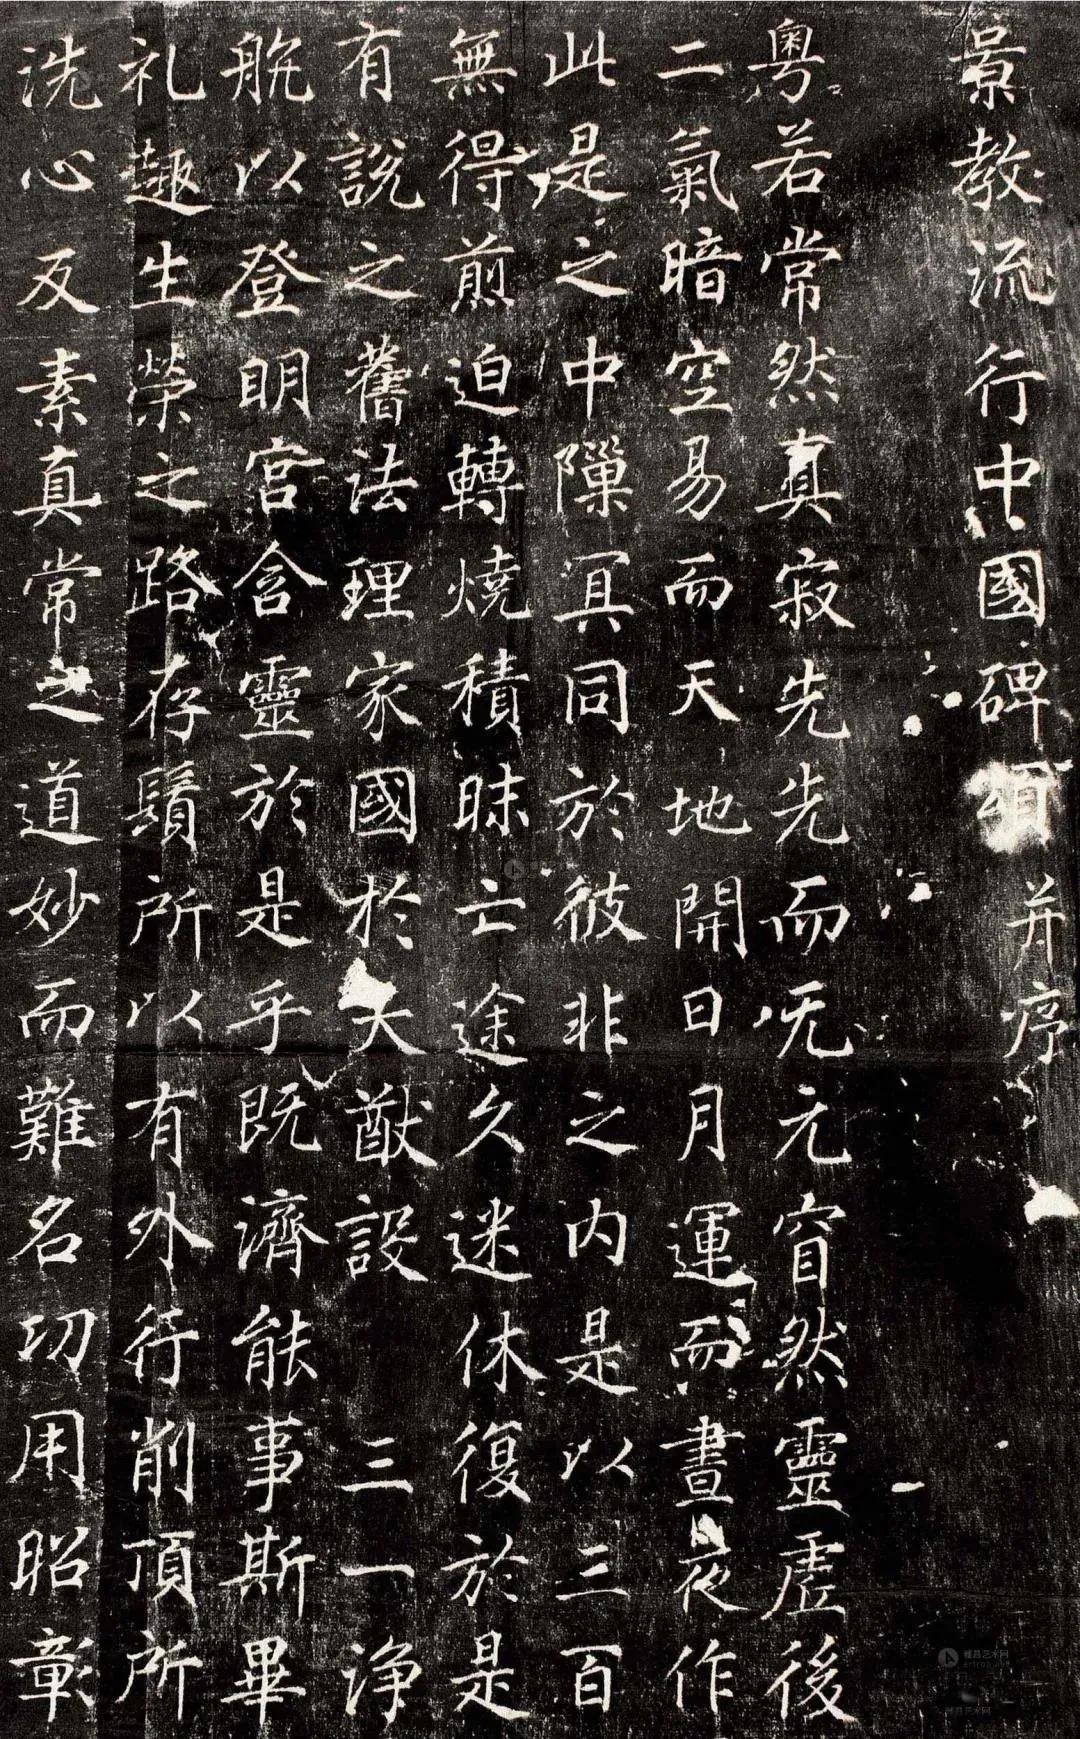 景教流行中國碑頌并序
粵若常然真寂先先而无元窅然靈虛後
二氣暗空易而天地開日月運而晝夜作
此是之中隟冥同於彼非之內是以三百
無得煎迫轉燒積昧亡途久迷休復於是
有說之舊法理家國於大猷設 三一浄
舩以登明宮含靈於是乎既濟能事斯畢
礼趣生榮之路存鬚所以有外行削頂所
洗心反素真常之道妙而難名功用昭彰
雅昌艺术网